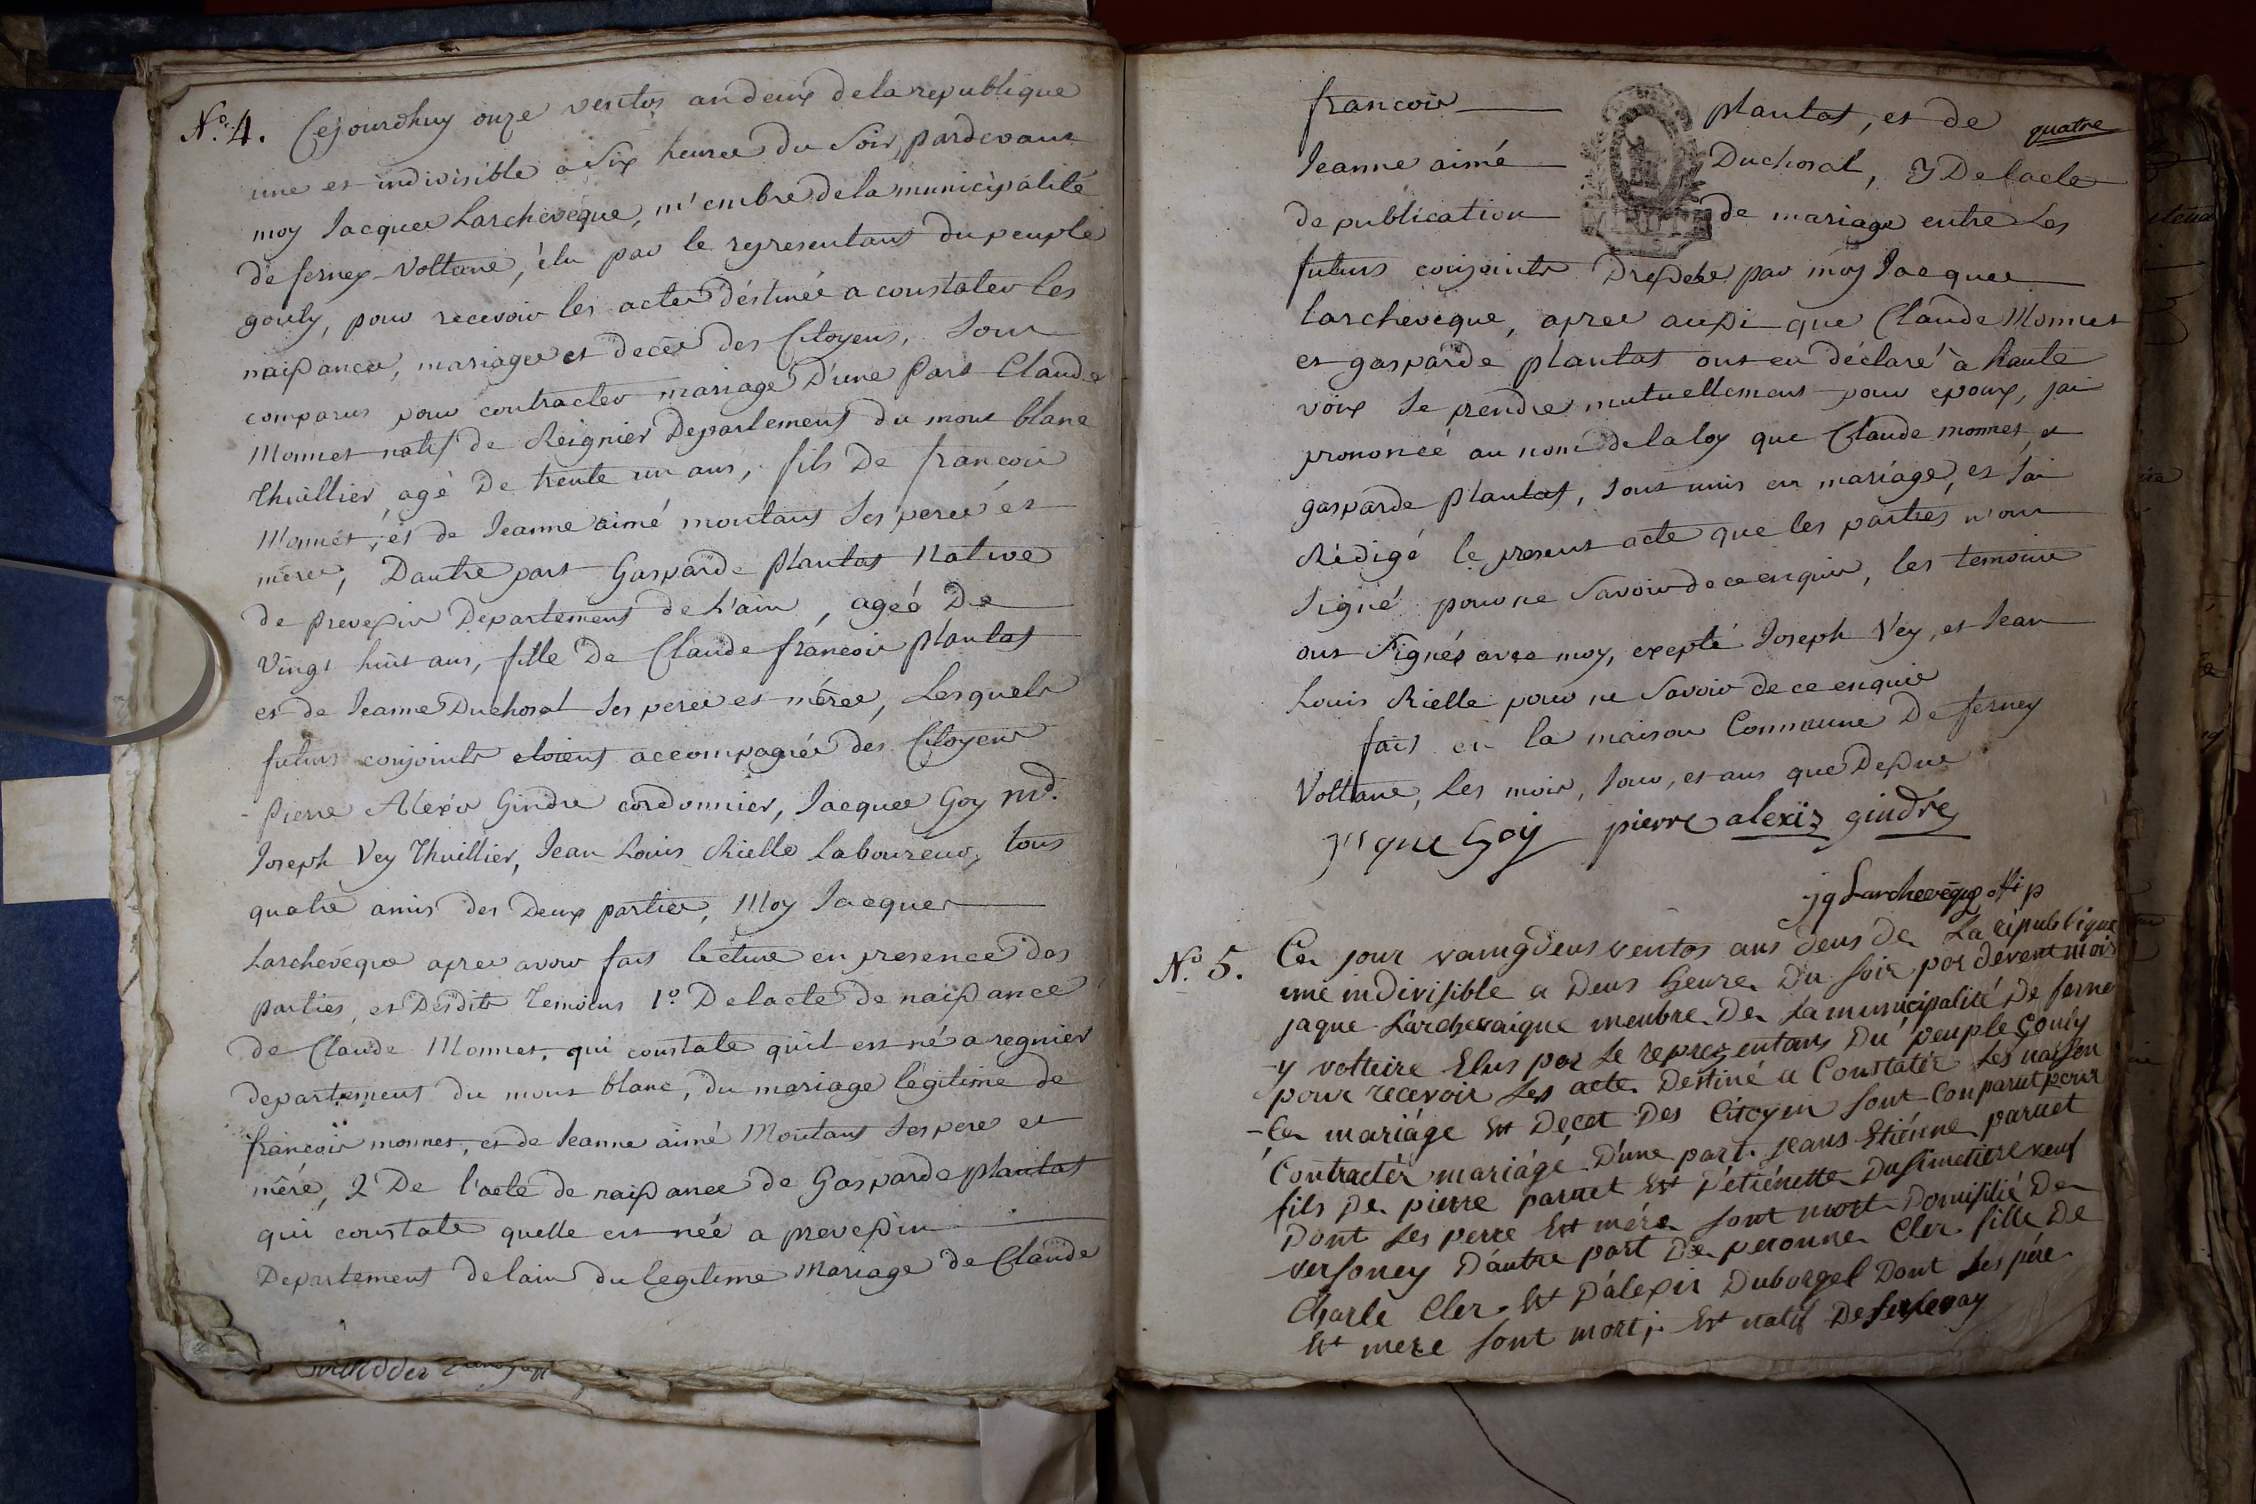 N.º 4. Cejourdhuy onze ventos an deux de la republique
une et indivisible a Six heures du Soir, pardevant
moy Jacques Larchevêque, m'embre de la municipalité
de ferney-Voltaire, élu par le representant du peuple
gouly, pour recevoir les actes déstinés a constater les
naissances, mariages et decès des Citoyens, Sont
comparus pour contracter mariage D'une Part Claude
Monnet natif de Reignier Departement du mont blanc
Thuillier, agé De trente un ans, fils De francois
Monnet, et de Jeanne aimé montant Ses peres et
meres, Dautre part Gasparde Plantat Native
de prevessin Departement de L'ain, ageé De
Vingt huit ans, fille De Claude françois Plantat
et de Jeanne Duchosal Ses peres et méres, Lesquels
futurs conjoints etoient accompagnés des Citoyens
Pierre Alexis Gindre cordonnier, Jacques Goy md.
Joseph Vey Thuillier, Jean Louis Rielle Laboureur, tous
quatre amis des Deux parties, Moy Jacques
Larchevéque apres avoir fait lecture en presence des
parties, et Desdits Temoins 1º De lacte de naissance
de Claude Monnet, qui constate quil est né a regnier
departement du mont blanc, du mariage légitime de
françois monnet, et de Jeanne aimé Montant Ses pere et
mére, 2º De l'acte de naissance de Gasparde plantat
qui constate quelle est née a prevessin
Departement de lain du legitime Mariage de Claude
quatre
francois plantat, et de
Jeanne aimé Duchosal, 3 De lacte
de publication de mariage entre Les
futurs conjoints Dressés par moy Jacques
larcheveque, apres aussi que Claude Monnet
et gasparde plantat ont eu déclaré à haute
voix Se prendre mutuellement pour epoux, jai
prononcé au nom de la loy que Claude monnet, et
gasparde Plantat, sont unis en mariage, et Jai
Rédigé le present acte que les parties n'ont
Signé pour ne Savoir de ce enquis, les temoins
ont Signés avec moy, exepté Joseph Vey, et Jean
Louis Rielle pour ne Savoir de ce enquis
fait en la maison Commune De ferney
Voltaire, Les mois, Jour, et ans que Dessus
Goÿ pierre alexiz gindre
jq Larchevêque off p
N.º 5. Ce jour vaingdeus ventos ans deus de La republique
une indivisible a Deus heure Du soir par devent moi
jaque Larchevaigue menbre De La municipalité De ferne
y volteire Elus par Le reprezentans Du peuple Gouly
pour recevoir Les acte Destiné a Constatér Les naissen
-Ce mariáge Et Deçet Des Citoyin sont Conparut pour
Contractér mariáge D'une part jeans Etiénne paruet
fils De pierre paruet Et Detiénette Dusimetiere veuf
Dont Les perre Et mére sont mort Domisilié De
versoney D'autre part De peronne Cler fille De
Charle Cler Et D'alexis Duborgel Dont Les pére
Et mere sont mort Et natif De